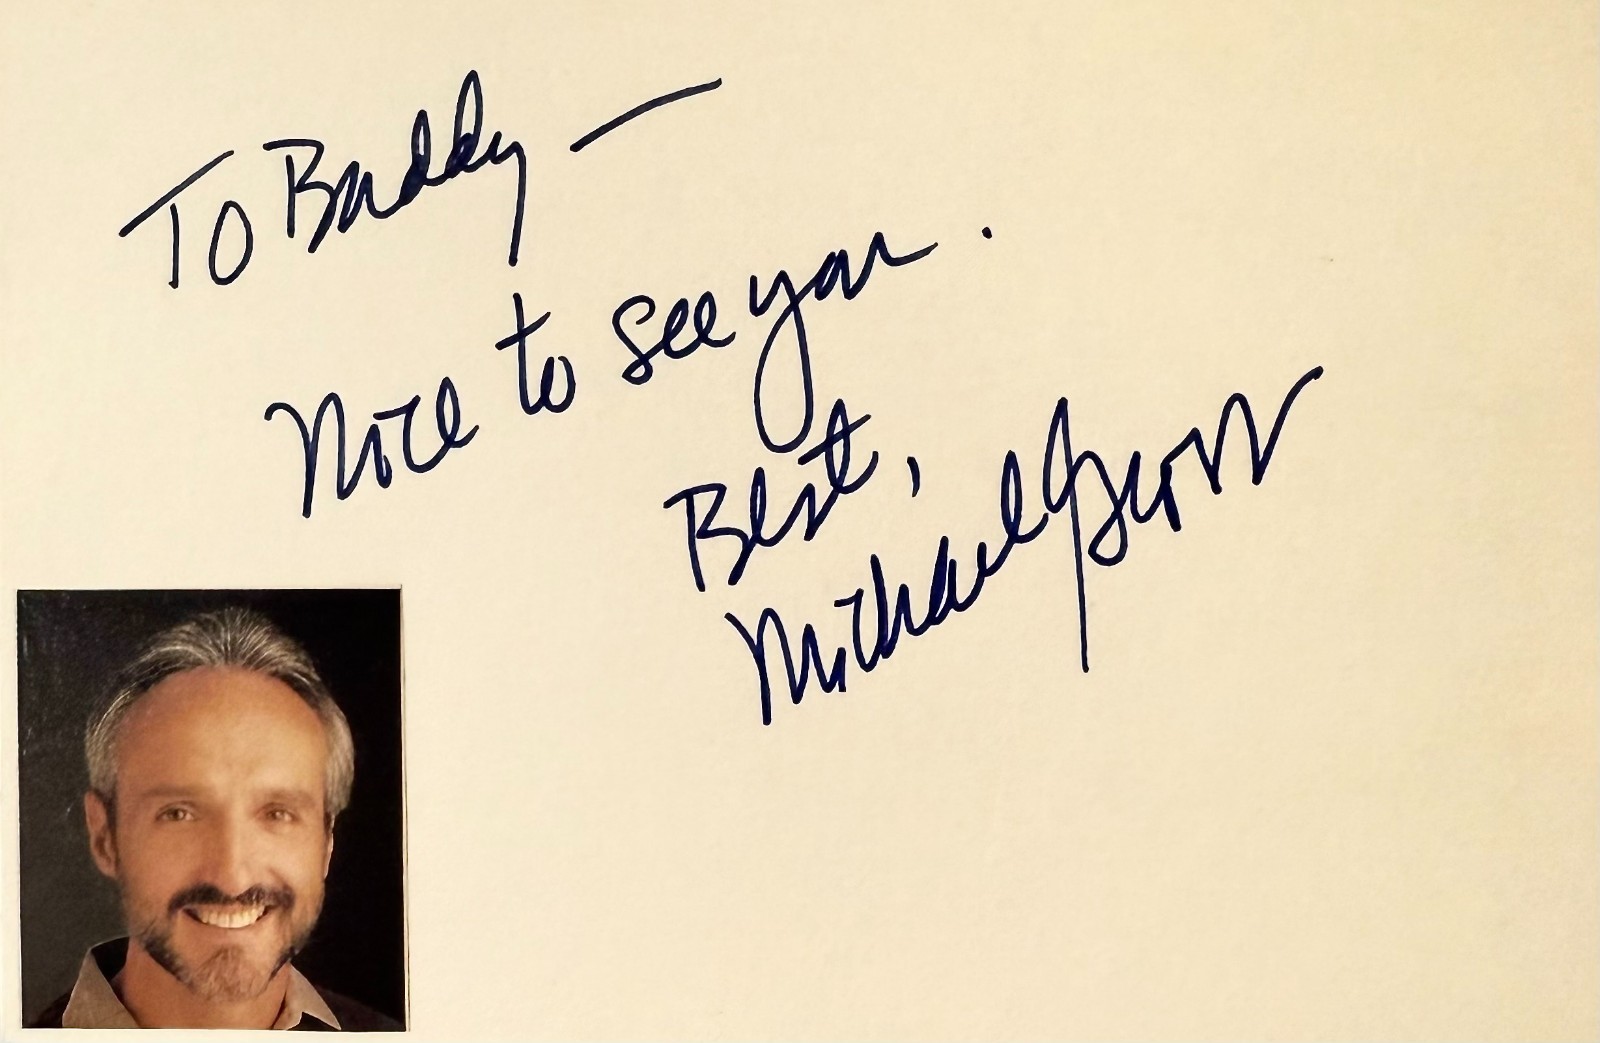 To Buddy —
Nice to see you.
Best,
Michael Gross